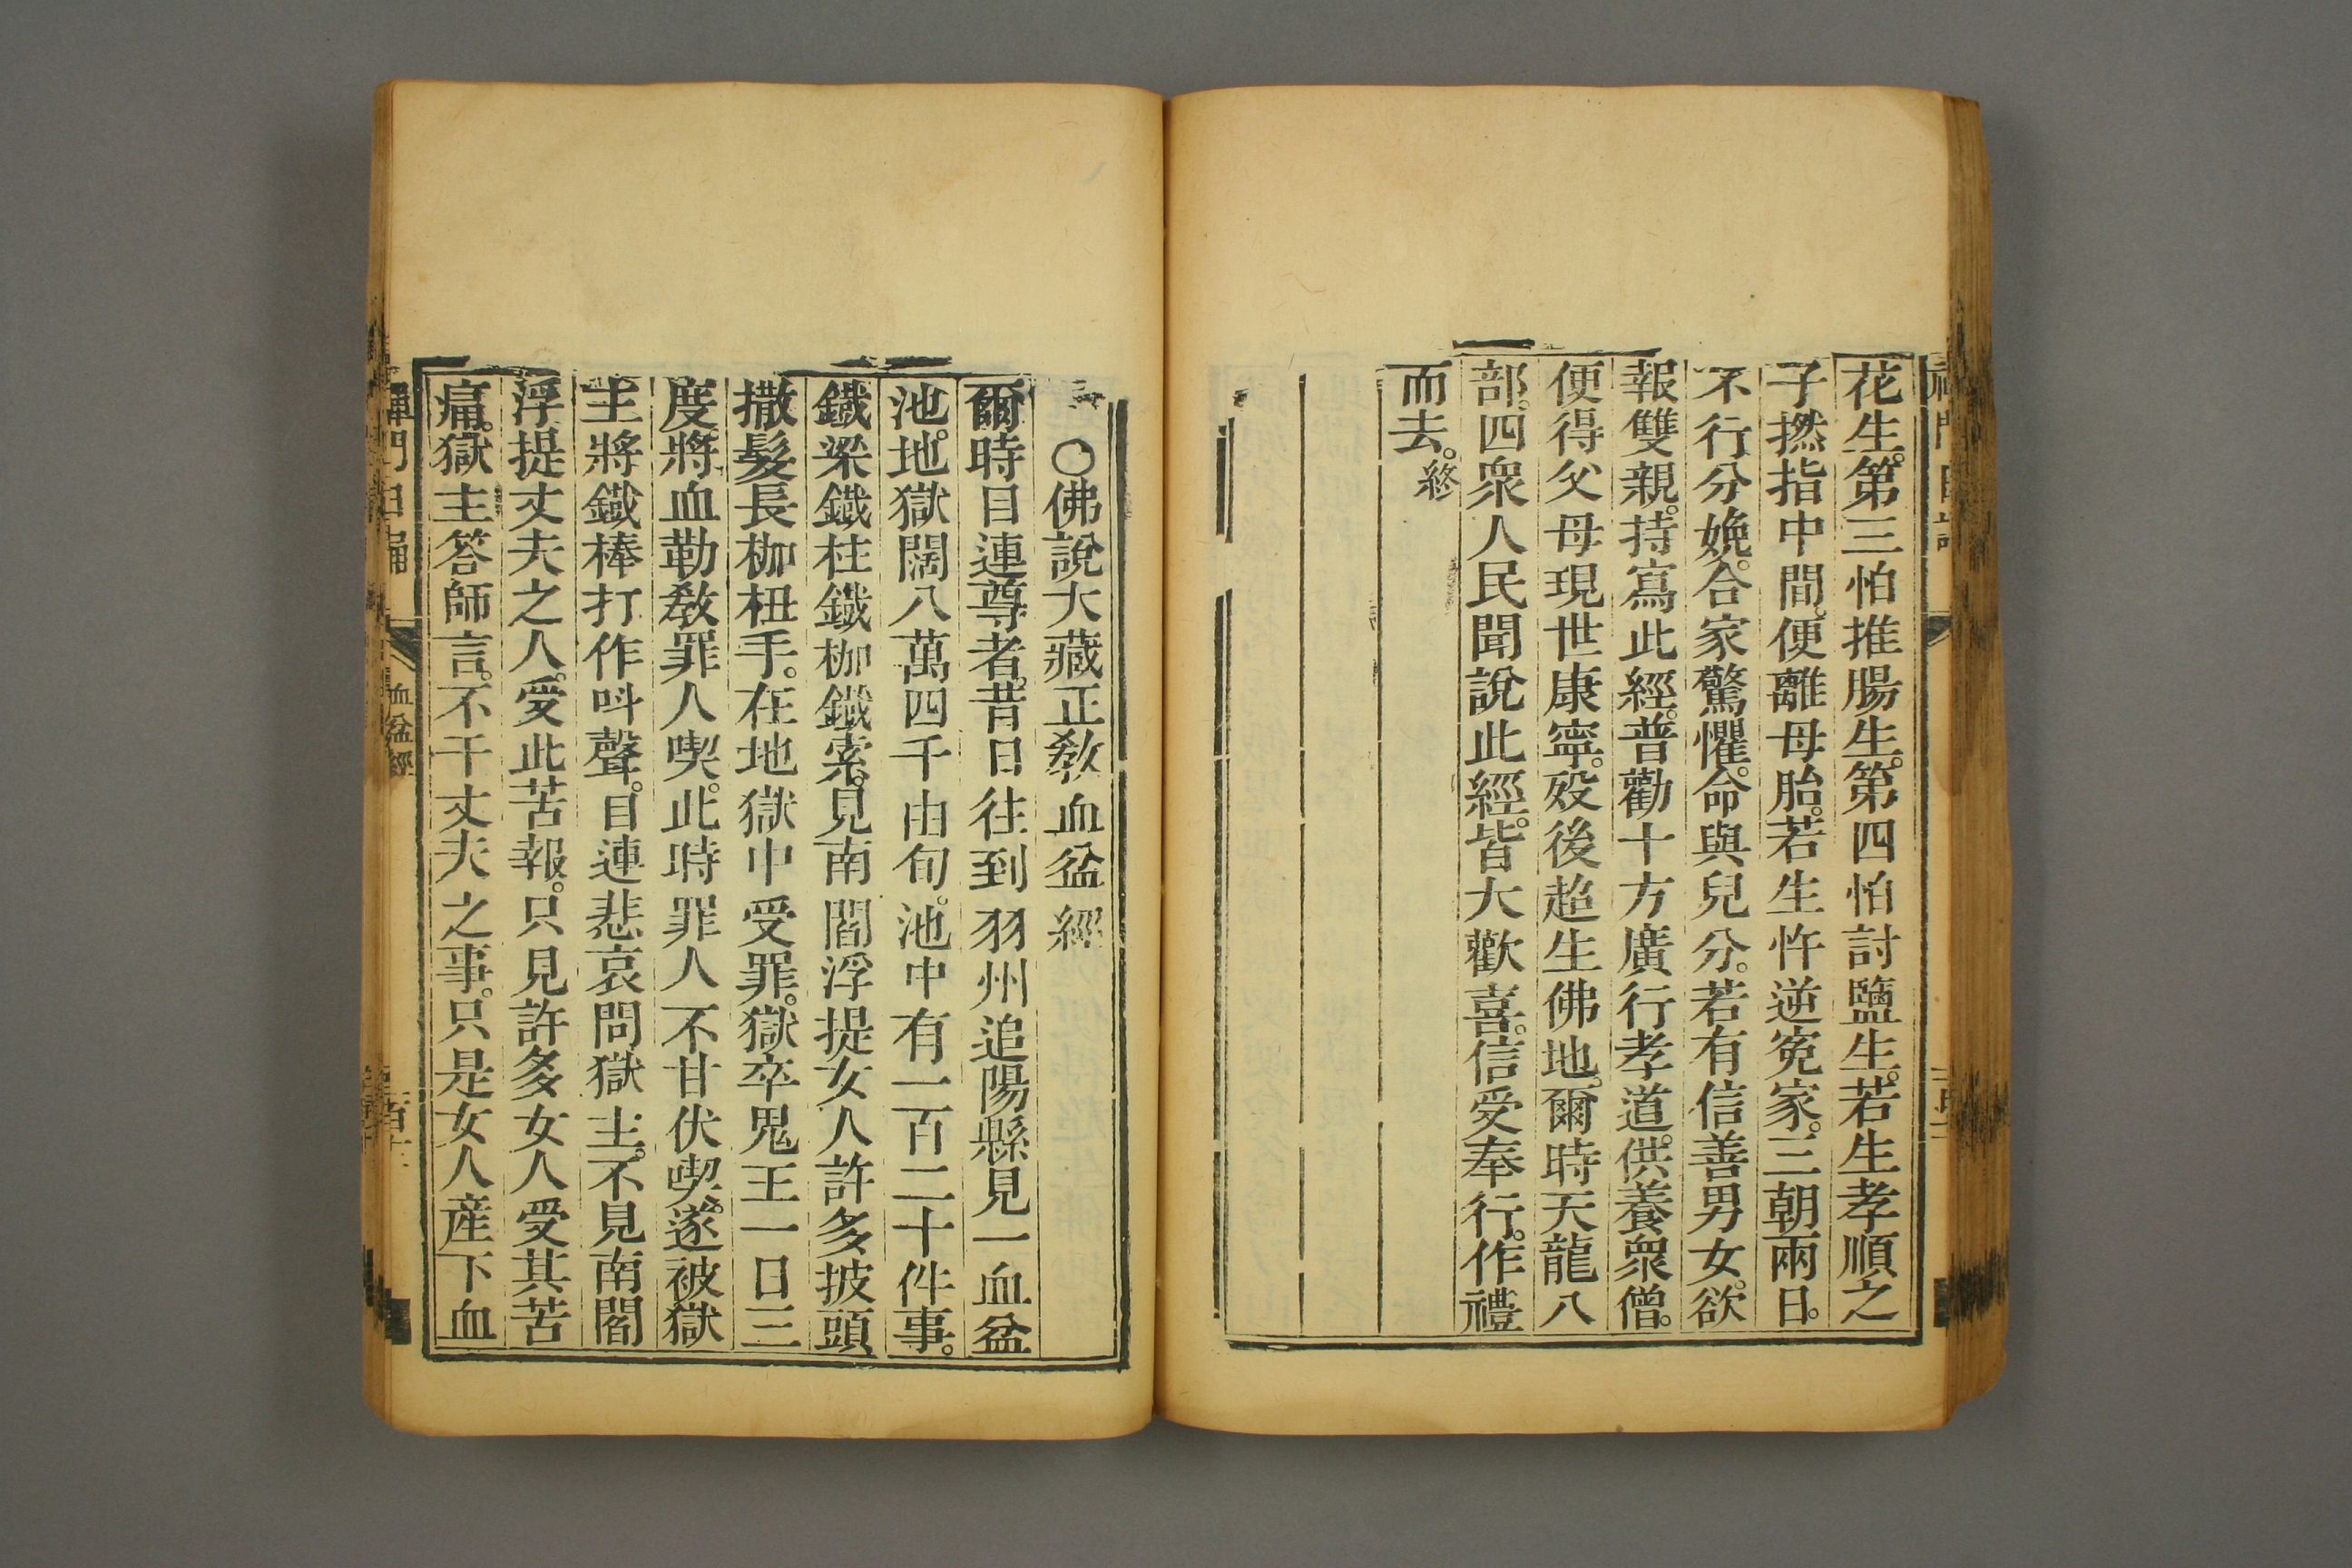 花生。第三怕推腸生。第四怕討鹽生。若生孝順之
子撚指中間。便離母胎。若生忤逆寃家。三朝兩日。
不行分娩。合家驚懼。命與兒分。若有信善男女。欲
報雙親。持寫此經。普勸十方廣行孝道。供養衆僧。
便得父母現世康寧。歿後超生佛地。爾時天龍八
部。四衆人民聞說此經。皆大歡喜。信受奉行。作禮
而去。終
○佛說大藏正敎血盆經
爾時目連尊者。昔日往到羽州追陽縣見一血盆
池。地獄闊八萬四千由旬。池中有一百二十件事。
鐵梁鐵柱鐵枷鐵索。見南閻浮提女人許多披頭
撒髮長枷杻手。在地獄中受罪。獄卒鬼王一日三
度。將血勒敎罪人喫。此時罪人不甘伏喫。遂被獄
主將鐵棒打作呌聲。目連悲哀問獄主。不見南閻
浮提丈夫之人。受此苦報。只見許多女人受其苦
痛。獄主答師言。不干丈夫之事。只是女人産下血
禪門日誦 血盆經